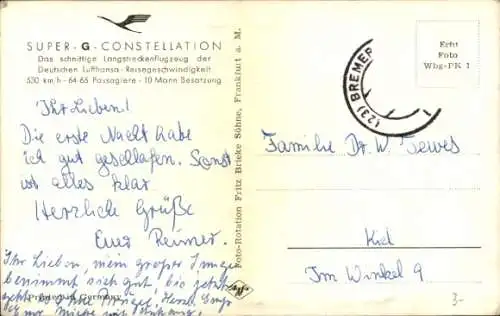 SUPER - G - CONSTELLATION
Das schnittige Langstreckenflugzeug der
Deutschen Lufthansa - Reisegeschwindigkeit
530 km h - 64-65 Passagiere - 10 Mann Besatzung
Ihr Lieben!
Die erste Nacht habe
ich gut geschlafen. Sonst
ist alles klar.
Herzliche Grüße
Euer Reimer.
Ihr Lieben, mein großer Junge
benimmt sich gut, bis jetzt
geht es ohne
Printed in Germany
Foto-Rotation Fritz Brieke Söhne, Frankfurt a. M.
(23) BREMEN
Echt
Foto
Wbg-PK 1
Familie Dr. W. Tewes
Kiel
Im Winkel 9
3-